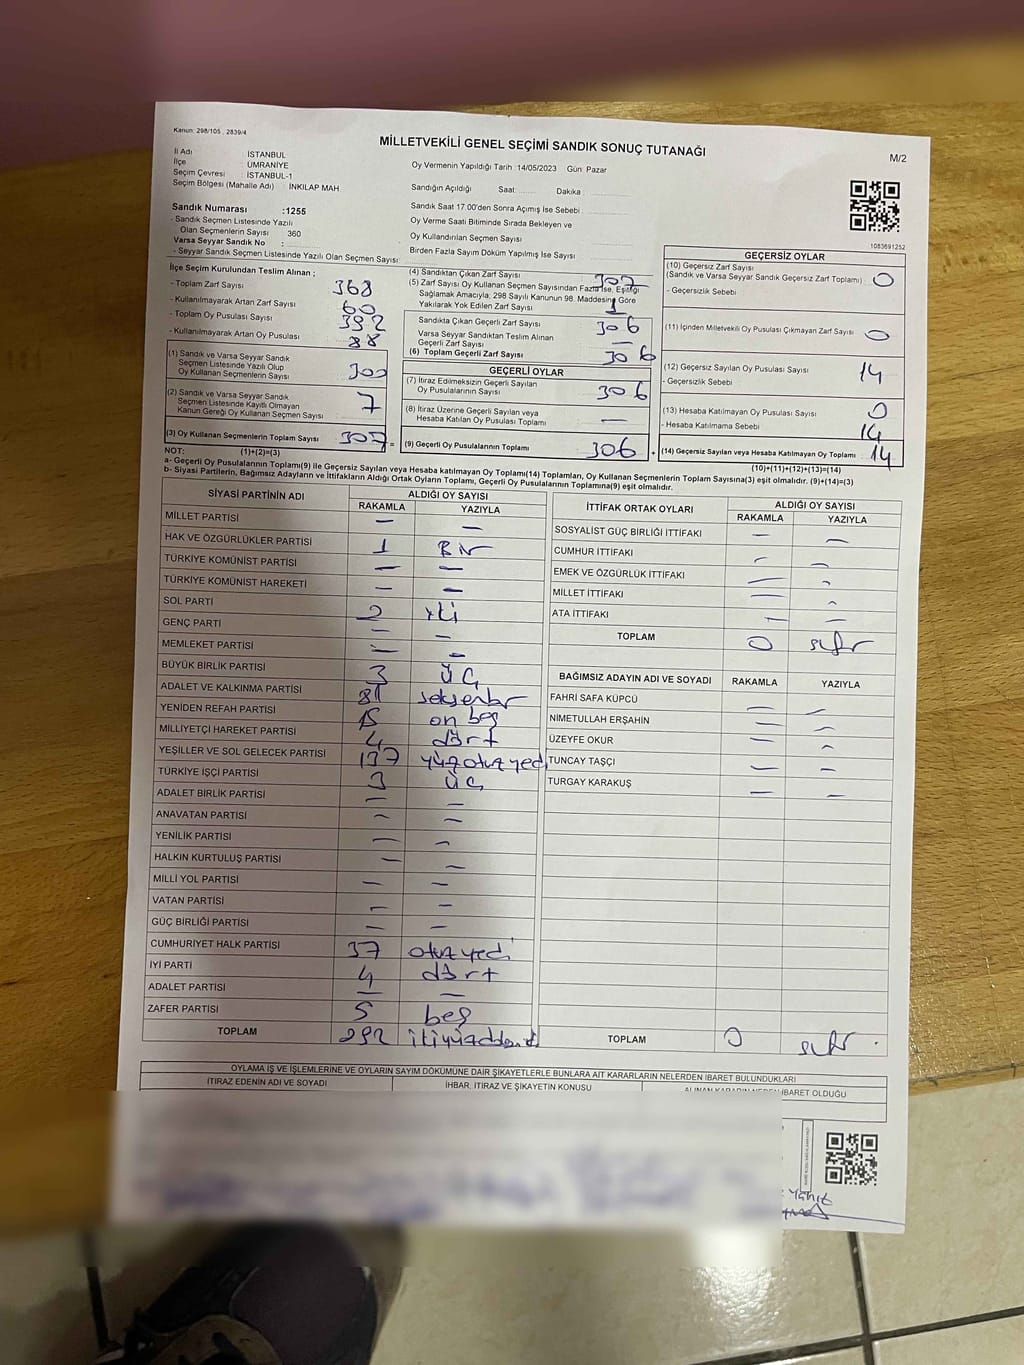 Kanun: 298/105 , 2839/4
MİLLETVEKİLİ GENEL SEÇİMİ SANDIK SONUÇ TUTANAĞI
M/2
İl Adı : İSTANBUL
İlçe : ÜMRANİYE
Seçim Çevresi : İSTANBUL-1
Seçim Bölgesi (Mahalle Adı) : İNKILAP MAH.
Oy Vermenin Yapıldığı Tarih :14/05/2023 Gün: Pazar
Sandığın Açıldığı Saat: Dakika :
Sandık Numarası :1255
- Sandık Seçmen Listesinde Yazılı
Olan Seçmenlerin Sayısı : 360
Varsa Seyyar Sandık No :
- Seyyar Sandık Seçmen Listesinde Yazılı Olan Seçmen Sayısı:
Sandık Saat 17.00'den Sonra Açılmış İse Sebebi
Oy Verme Saati Bitiminde Sırada Bekleyen ve
Oy Kullandırılan Seçmen Sayısı
Birden Fazla Sayım Döküm Yapılmış İse Sayısı
1083691252
İlçe Seçim Kurulundan Teslim Alınan ;
- Toplam Zarf Sayısı : 368
- Kullanılmayarak Artan Zarf Sayısı : 60
- Toplam Oy Pusulası Sayısı : 392
- Kullanılmayarak Artan Oy Pusulası : 88
(1) Sandık ve Varsa Seyyar Sandık
Seçmen Listesinde Yazılı Olup
Oy Kullanan Seçmenlerin Sayısı 300
(2) Sandık ve Varsa Seyyar Sandık
Seçmen Listesinde Kayıtlı Olmayan
Kanun Gereği Oy Kullanan Seçmen Sayısı 7
(3) Oy Kullanan Seçmenlerin Toplam Sayısı 307
(1)+(2)=(3)
(4) Sandıktan Çıkan Zarf Sayısı 307
(5) Zarf Sayısı Oy Kullanan Seçmen Sayısından Fazla İse, Eşitliği
Sağlamak Amacıyla, 298 Sayılı Kanunun 98. Maddesine Göre
Yakılarak Yok Edilen Zarf Sayısı 1
Sandıkta Çıkan Geçerli Zarf Sayısı 306
Varsa Seyyar Sandıktan Teslim Alınan
Geçerli Zarf Sayısı —
(6) Toplam Geçerli Zarf Sayısı 306
GEÇERLİ OYLAR
(7) İtiraz Edilmeksizin Geçerli Sayılan
Oy Pusulalarının Sayısı 306
(8) İtiraz Üzerine Geçerli Sayılan veya
Hesaba Katılan Oy Pusulası Toplamı —
= (9) Geçerli Oy Pusulalarının Toplamı 306
GEÇERSİZ OYLAR
(10) Geçersiz Zarf Sayısı
(Sandık ve Varsa Seyyar Sandık Geçersiz Zarf Toplamı) : 0
- Geçersizlik Sebebi
(11) İçinden Milletvekili Oy Pusulası Çıkmayan Zarf Sayısı : 0
(12) Geçersiz Sayılan Oy Pusulası Sayısı : 14
- Geçersizlik Sebebi
(13) Hesaba Katılmayan Oy Pusulası Sayısı : 0
- Hesaba Katılmama Sebebi : 14
+ (14) Geçersiz Sayılan veya Hesaba Katılmayan Oy Toplamı : 14
(10)+(11)+(12)+(13)=(14)
NOT:
a- Geçerli Oy Pusulalarının Toplamı(9) ile Geçersiz Sayılan veya Hesaba katılmayan Oy Toplamı(14) Toplamları, Oy Kullanan Seçmenlerin Toplam Sayısına(3) eşit olmalıdır. (9)+(14)=(3)
b- Siyasi Partilerin, Bağımsız Adayların ve İttifakların Aldığı Ortak Oyların Toplamı, Geçerli Oy Pusulalarının Toplamına(9) eşit olmalıdır.
SİYASİ PARTİNİN ADI ALDIĞI OY SAYISI
RAKAMLA YAZIYLA
MİLLET PARTİSİ — —
HAK VE ÖZGÜRLÜKLER PARTİSİ 1 Bir
TÜRKİYE KOMÜNİST PARTİSİ — —
TÜRKİYE KOMÜNİST HAREKETİ — —
SOL PARTİ 2 iki
GENÇ PARTİ — —
MEMLEKET PARTİSİ — —
BÜYÜK BİRLİK PARTİSİ 3 ÜÇ
ADALET VE KALKINMA PARTİSİ 81 seksenbir
YENİDEN REFAH PARTİSİ 15 on beş
MİLLİYETÇİ HAREKET PARTİSİ 4 dört
YEŞİLLER VE SOL GELECEK PARTİSİ 137 yüzotuzyedi
TÜRKİYE İŞÇİ PARTİSİ 3 üç
ADALET BİRLİK PARTİSİ — —
ANAVATAN PARTİSİ — —
YENİLİK PARTİSİ — —
HALKIN KURTULUŞ PARTİSİ — —
MİLLİ YOL PARTİSİ — —
VATAN PARTİSİ — —
GÜÇ BİRLİĞİ PARTİSİ — —
CUMHURİYET HALK PARTİSİ 37 otuzyedi
İYİ PARTİ 4 dört
ADALET PARTİSİ — —
ZAFER PARTİSİ 5 beş
TOPLAM 292
İTTİFAK ORTAK OYLARI ALDIĞI OY SAYISI
RAKAMLA YAZIYLA
SOSYALİST GÜÇ BİRLİĞİ İTTİFAKI — —
CUMHUR İTTİFAKI — —
EMEK VE ÖZGÜRLÜK İTTİFAKI — —
MİLLET İTTİFAKI — —
ATA İTTİFAKI — —
TOPLAM 0 sıfır
BAĞIMSIZ ADAYIN ADI VE SOYADI RAKAMLA YAZIYLA
FAHRİ SAFA KÜPCÜ — —
NİMETULLAH ERŞAHİN — —
ÜZEYFE OKUR — —
TUNCAY TAŞÇI — —
TURGAY KARAKUŞ — —
TOPLAM 0 sıfır
OYLAMA İŞ VE İŞLEMLERİNE VE OYLARIN SAYIM DÖKÜMÜNE DAİR ŞİKAYETLERLE BUNLARA AİT KARARLARIN NELERDEN İBARET BULUNDUKLARI
İTİRAZ EDENİN ADI VE SOYADI İHBAR, İTİRAZ VE ŞİKAYETİN KONUSU ALINAN KARARIN NEDEN İBARET OLDUĞU